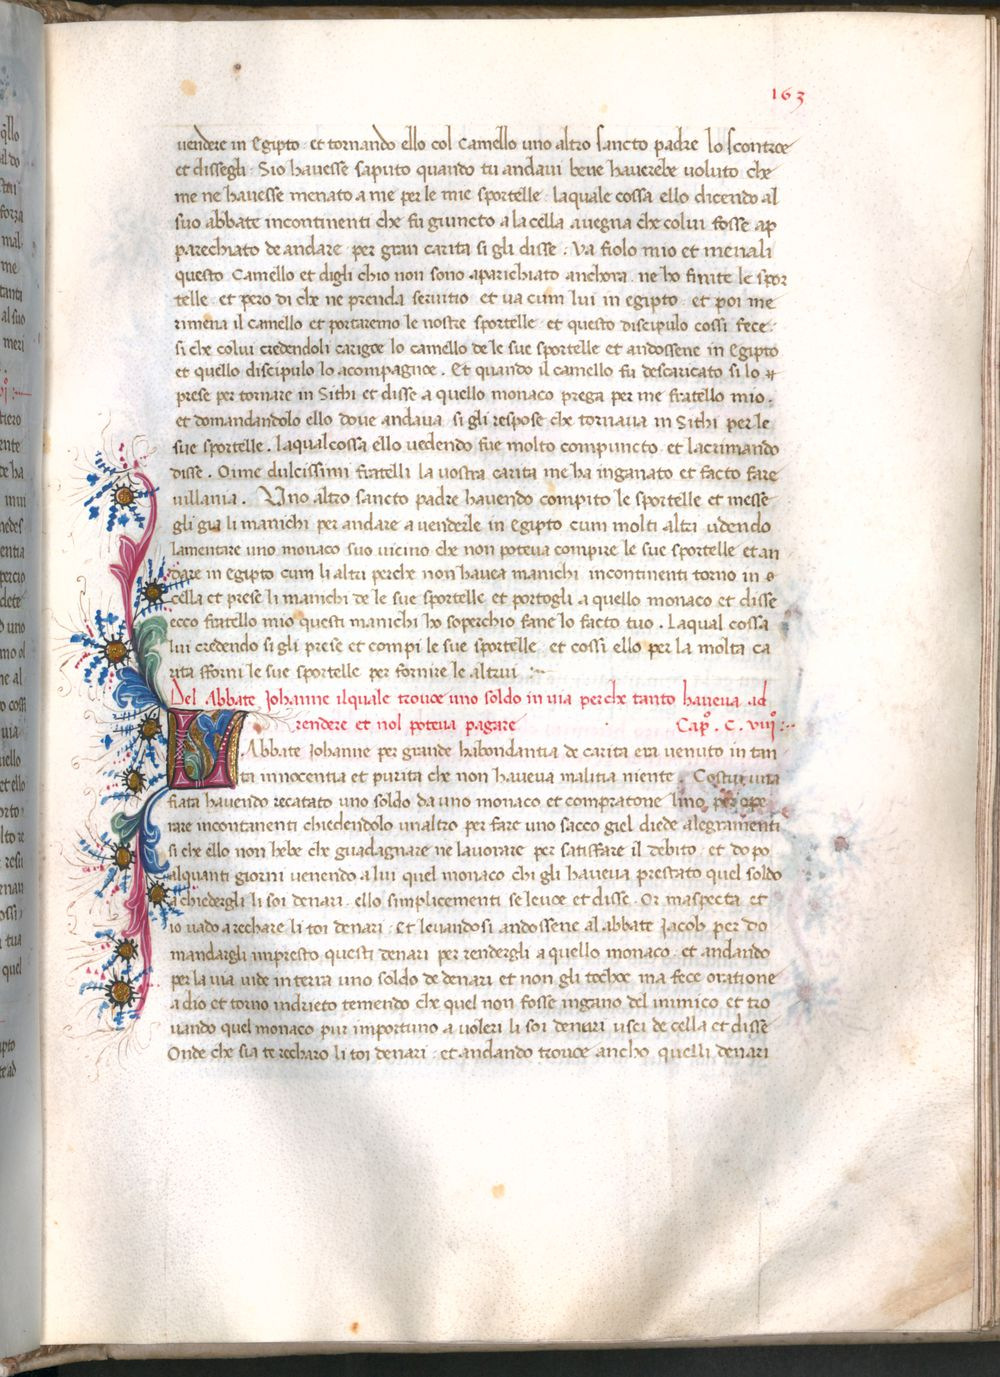 163
vendere in Egipto · et tornando ello col Camello uno altro sancto padre lo scontroe
et dissegli · Sio havesse saputo quando tu andavi bene haverebe voluto che
me ne havesse menato a me per le mie sportelle · laquale cossa ello dicendo al
suo abbate incontinenti che fu giuncto a la cella avegna che colui fosse ap
parechiato de andare · per gran carita si gli disse · Va fiolo mio et menali
questo Camello et digli chio non sono aparichiato anchora · ne ho finite le spor
telle · et pero di che ne prenda servitio · et va cum lui in egipto · et poi me
rimena il camello et portaremo le nostre sportelle · et questo discipulo cossi fece ·
si che colui credendoli carigoe lo camello de le sue sportelle et andossene in Egipto
et quello discipulo lo acompagnoe . Et quando il camello fu descaricato si lo
prese per tornare in Sithi et disse a quello monaco prega per me fratello mio .
et domandandolo ello dove andava · si gli respose che tornava in Sithi per le
sue sportelle . laqual cossa ello vedendo fue molto compuncto · et lacrimando
disse . Oime dulcissimi fratelli la vostra carita me ha inganato et facto fare
villania . Uno altro sancto padre havendo compito le sportelle et messe
gli gia li manichi per andare a venderle in Egipto cum molti altri videndo
lamentare uno monaco suo vicino che non poteva compire le sue sportelle et an
dare in egipto cum li altri perche non havea manichi · incontinenti torno in
cella et prese li manichi de le sue sportelle et portogli a quello monaco et disse
ecco fratello mio questi manichi ho soperchio fane lo facto tuo . laqual cossa
lui credendo si gli prese et compi le sue sportelle · et cossi ello per la molta ca
rita sforni le sue sportelle per fornire le altrui
Del Abbate Johanne ilquale trouoe uno soldo in via perche tanto haveva ad
rendere et nol poteva pagare Cap° . C . viiij°
L Abbate Johanne per grande habondantia de carita era venuto in tan
ta innocentia et purita che non haveva malitia niente . Costui una
fiata havendo recatato uno soldo da uno monaco et compratone lino per ope
rare incontanenti chiedendolo unaltro per fare uno sacco giel diede alegramenti
si che ello non hebe che guadagnare ne lavorare per satisfare il debito · et dopo
alquanti giorni venendo a lui quel monaco chi gli haveva prestato quel soldo
a chiedergli li soi denari · ello simplicementi se levoe et disse . Or maspecta et
io vado a rechare li toi denari · Et levandosi andossene al abbate Jacob per do
mandargli impresto questi denari per rendergli a quello monaco · et andando
per la via vide in terra uno soldo de denari et non gli tochoe ma fece oratione
a dio et torno indrieto temendo che quel non fosse ingano del inimico et tro
vando quel monaco pur importuno a voleri li soi denari usci de cella et disse
Onde che sia te recharo li toi denari · et andando trovoe ancho quelli denari